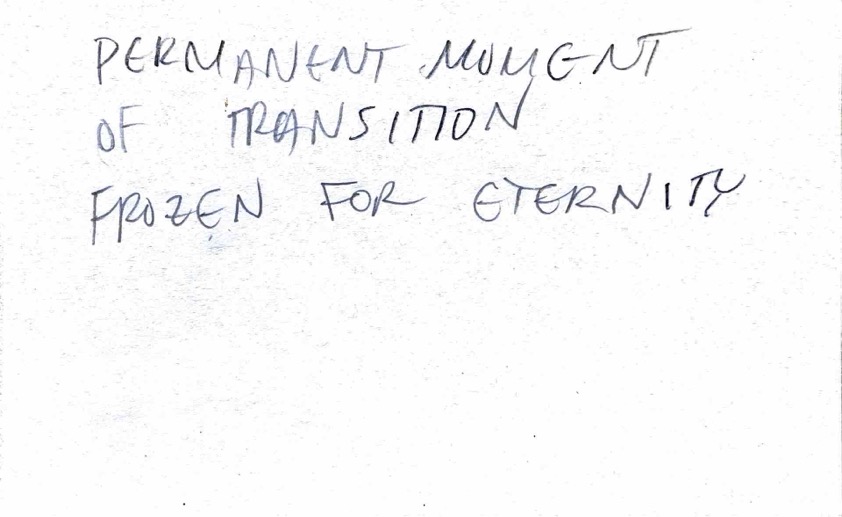 PERMANENT MOMENT
OF TRANSITION
FROZEN FOR ETERNITY